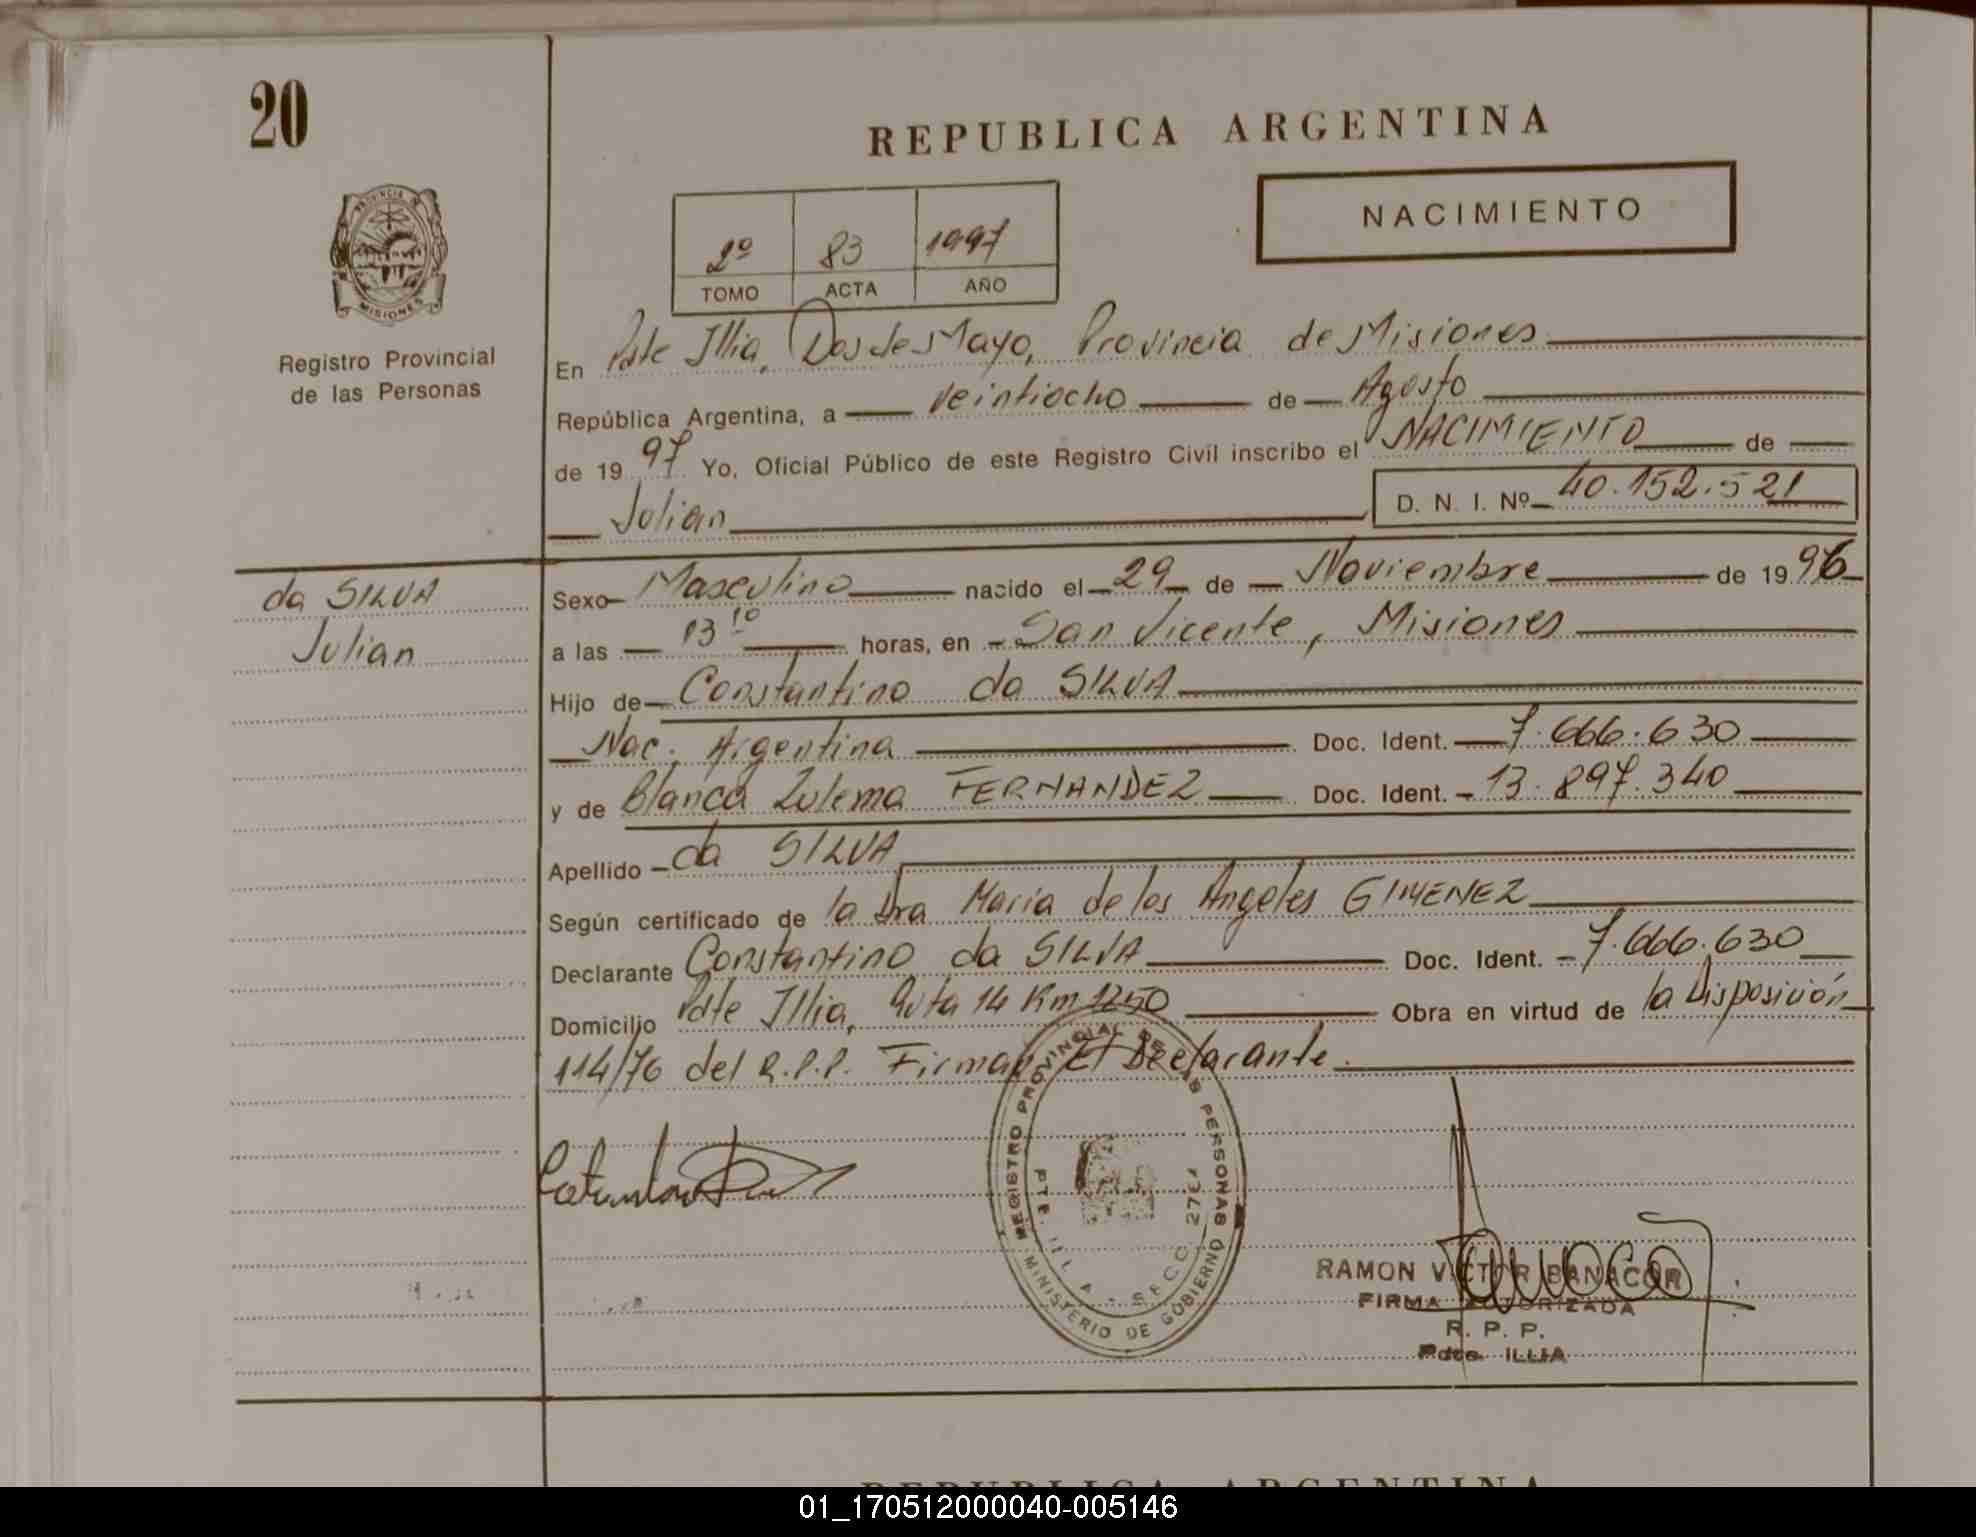 20
REPUBLICA ARGENTINA
PROVINCIA DE
MISIONES
Registro Provincial
de las Personas
NACIMIENTO
2º 83 1997
TOMO ACTA AÑO
En Pdte Illia, Dos de Mayo, Provincia de Misiones
República Argentina, a veintiocho de Agosto
de 19 97 Yo, Oficial Público de este Registro Civil inscribo el NACIMIENTO de
Julian D. N. I. Nº 40.152.521
da SILVA
Julian
Sexo Masculino nacido el 29 de Noviembre de 19 96
a las 13 10 horas, en San Vicente, Misiones
Hijo de Constantino da SILVA
Nac. Argentina Doc. Ident. 7.666.630
y de Blanca Zulema FERNANDEZ Doc. Ident. 13.897.340
Apellido da SILVA
Según certificado de la Dra Maria de los Angeles GIMENEZ
Declarante Constantino da SILVA Doc. Ident. 7.666.630
Domicilio Pdte Illia, Ruta 14 Km 1250 Obra en virtud de la Disposición
114/76 del R.P.P. Firman El Declarante.
REGISTRO PROVINCIAL DE LAS PERSONAS
MINISTERIO DE GOBIERNO
PTE. ILLIA - SECC.
RAMON VICTOR BANACOR
FIRMA AUTORIZADA
R. P. P.
Pdte. ILLIA
REPUBLICA ARGENTINA
01_170512000040-005146